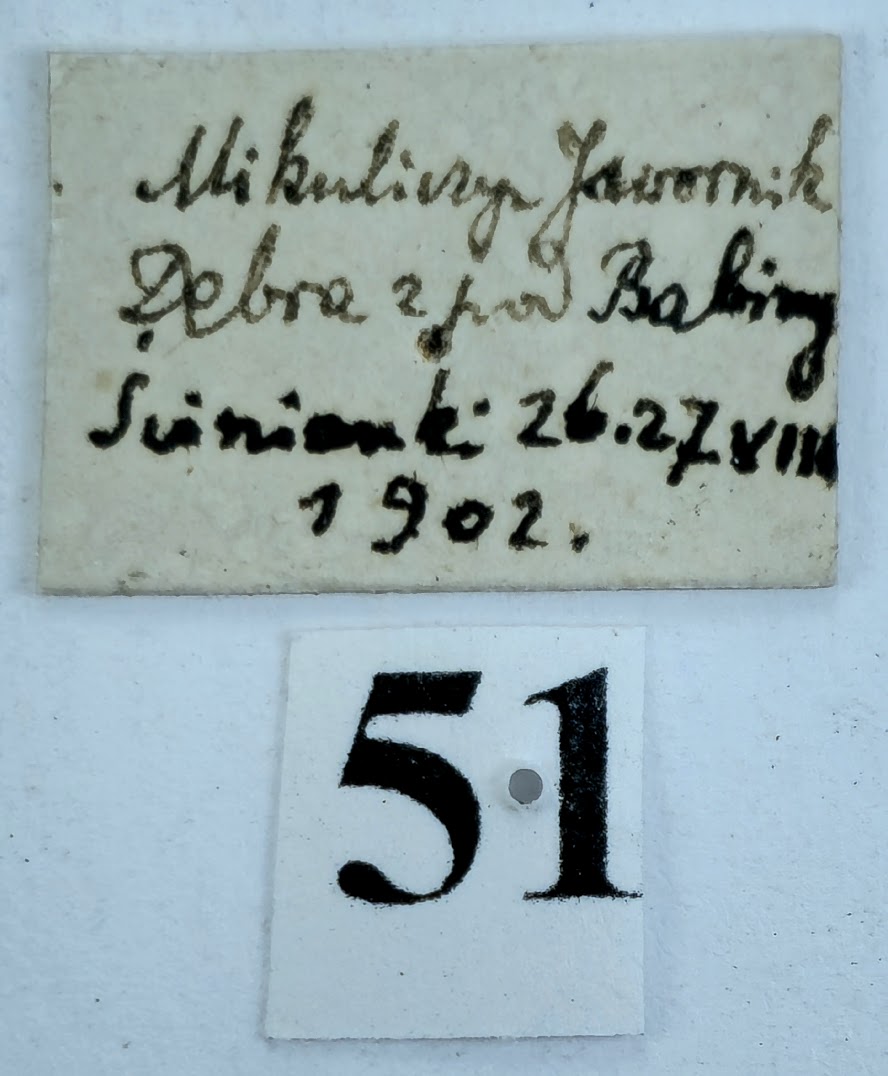 Mikuliczyn Jawornik
Debra z pod Babiny
Sienianki 26.27 VIII
1902.
51